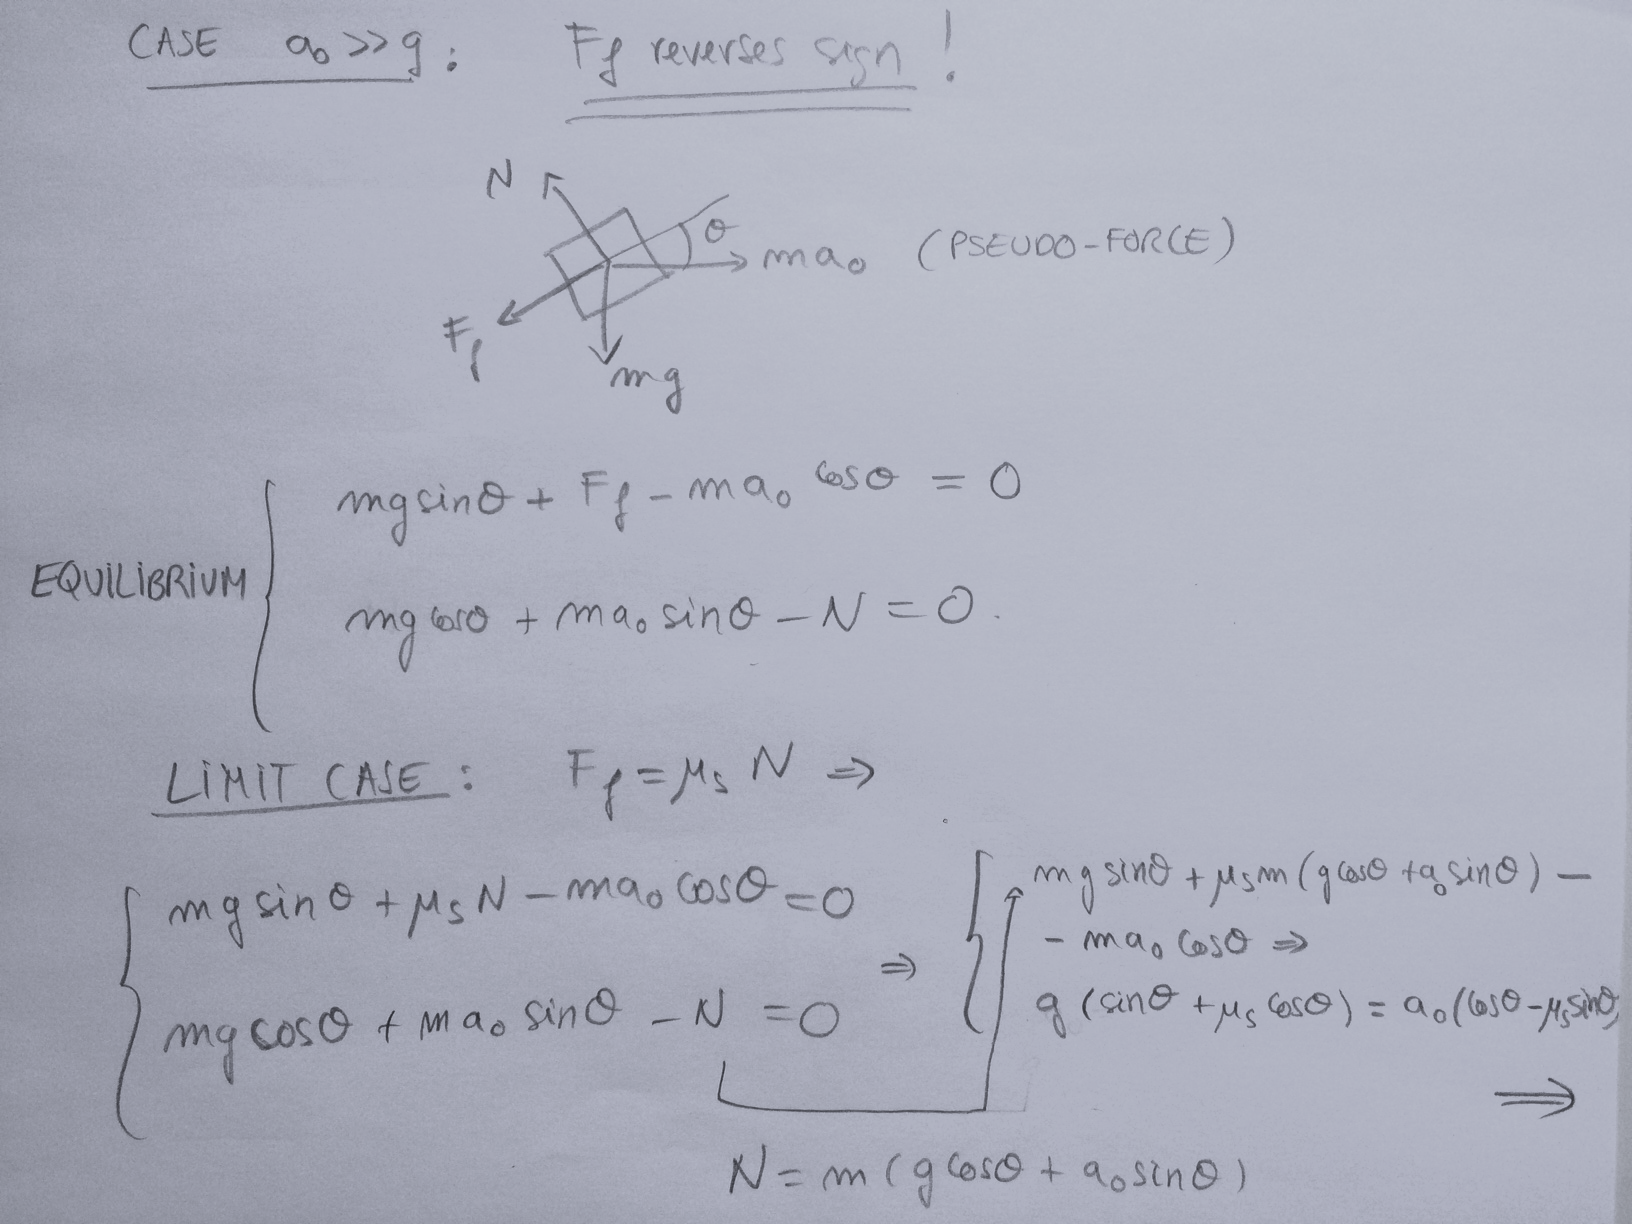 CASE a₀ >> g: Ff reverses sign!
N
θ
ma₀ (PSEUDO-FORCE)
Ff
mg
mg sinθ + Ff - ma₀ cosθ = 0
EQUILIBRIUM
mg cosθ + ma₀ sinθ - N = 0.
LIMIT CASE: Ff = μs N ⇒
mg sinθ + μs N - ma₀ cosθ = 0
mg cosθ + ma₀ sinθ - N = 0
⇒
mg sinθ + μs m (g cosθ + a₀ sinθ) -
- ma₀ cosθ ⇒
g (sinθ + μs cosθ) = a₀ (cosθ - μs sinθ)
⇒
N = m (g cosθ + a₀ sinθ)